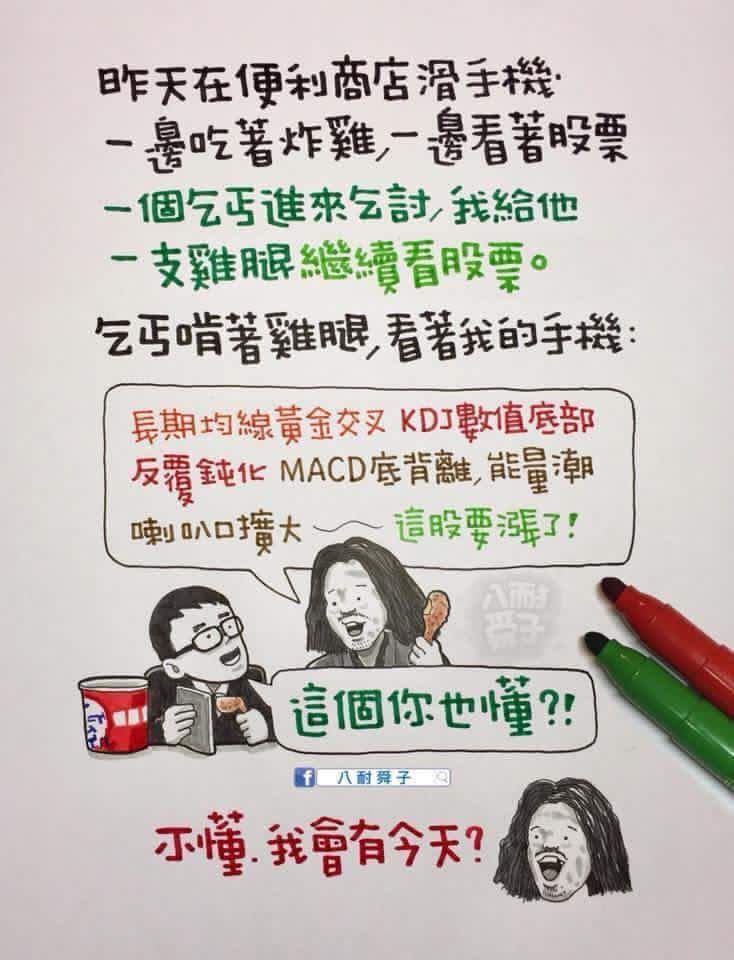 昨天在便利商店滑手機.
一邊吃著炸雞,一邊看著股票
一個乞丐進來乞討,我給他
一支雞腿繼續看股票。
乞丐啃著雞腿,看著我的手機:
長期均線黃金交叉 KDJ數值底部
反覆鈍化 MACD底背離,能量潮
喇叭口擴大～這股要漲了!
八耐
舜子
這個你也懂?!
f 八耐舜子
不懂.我會有今天?